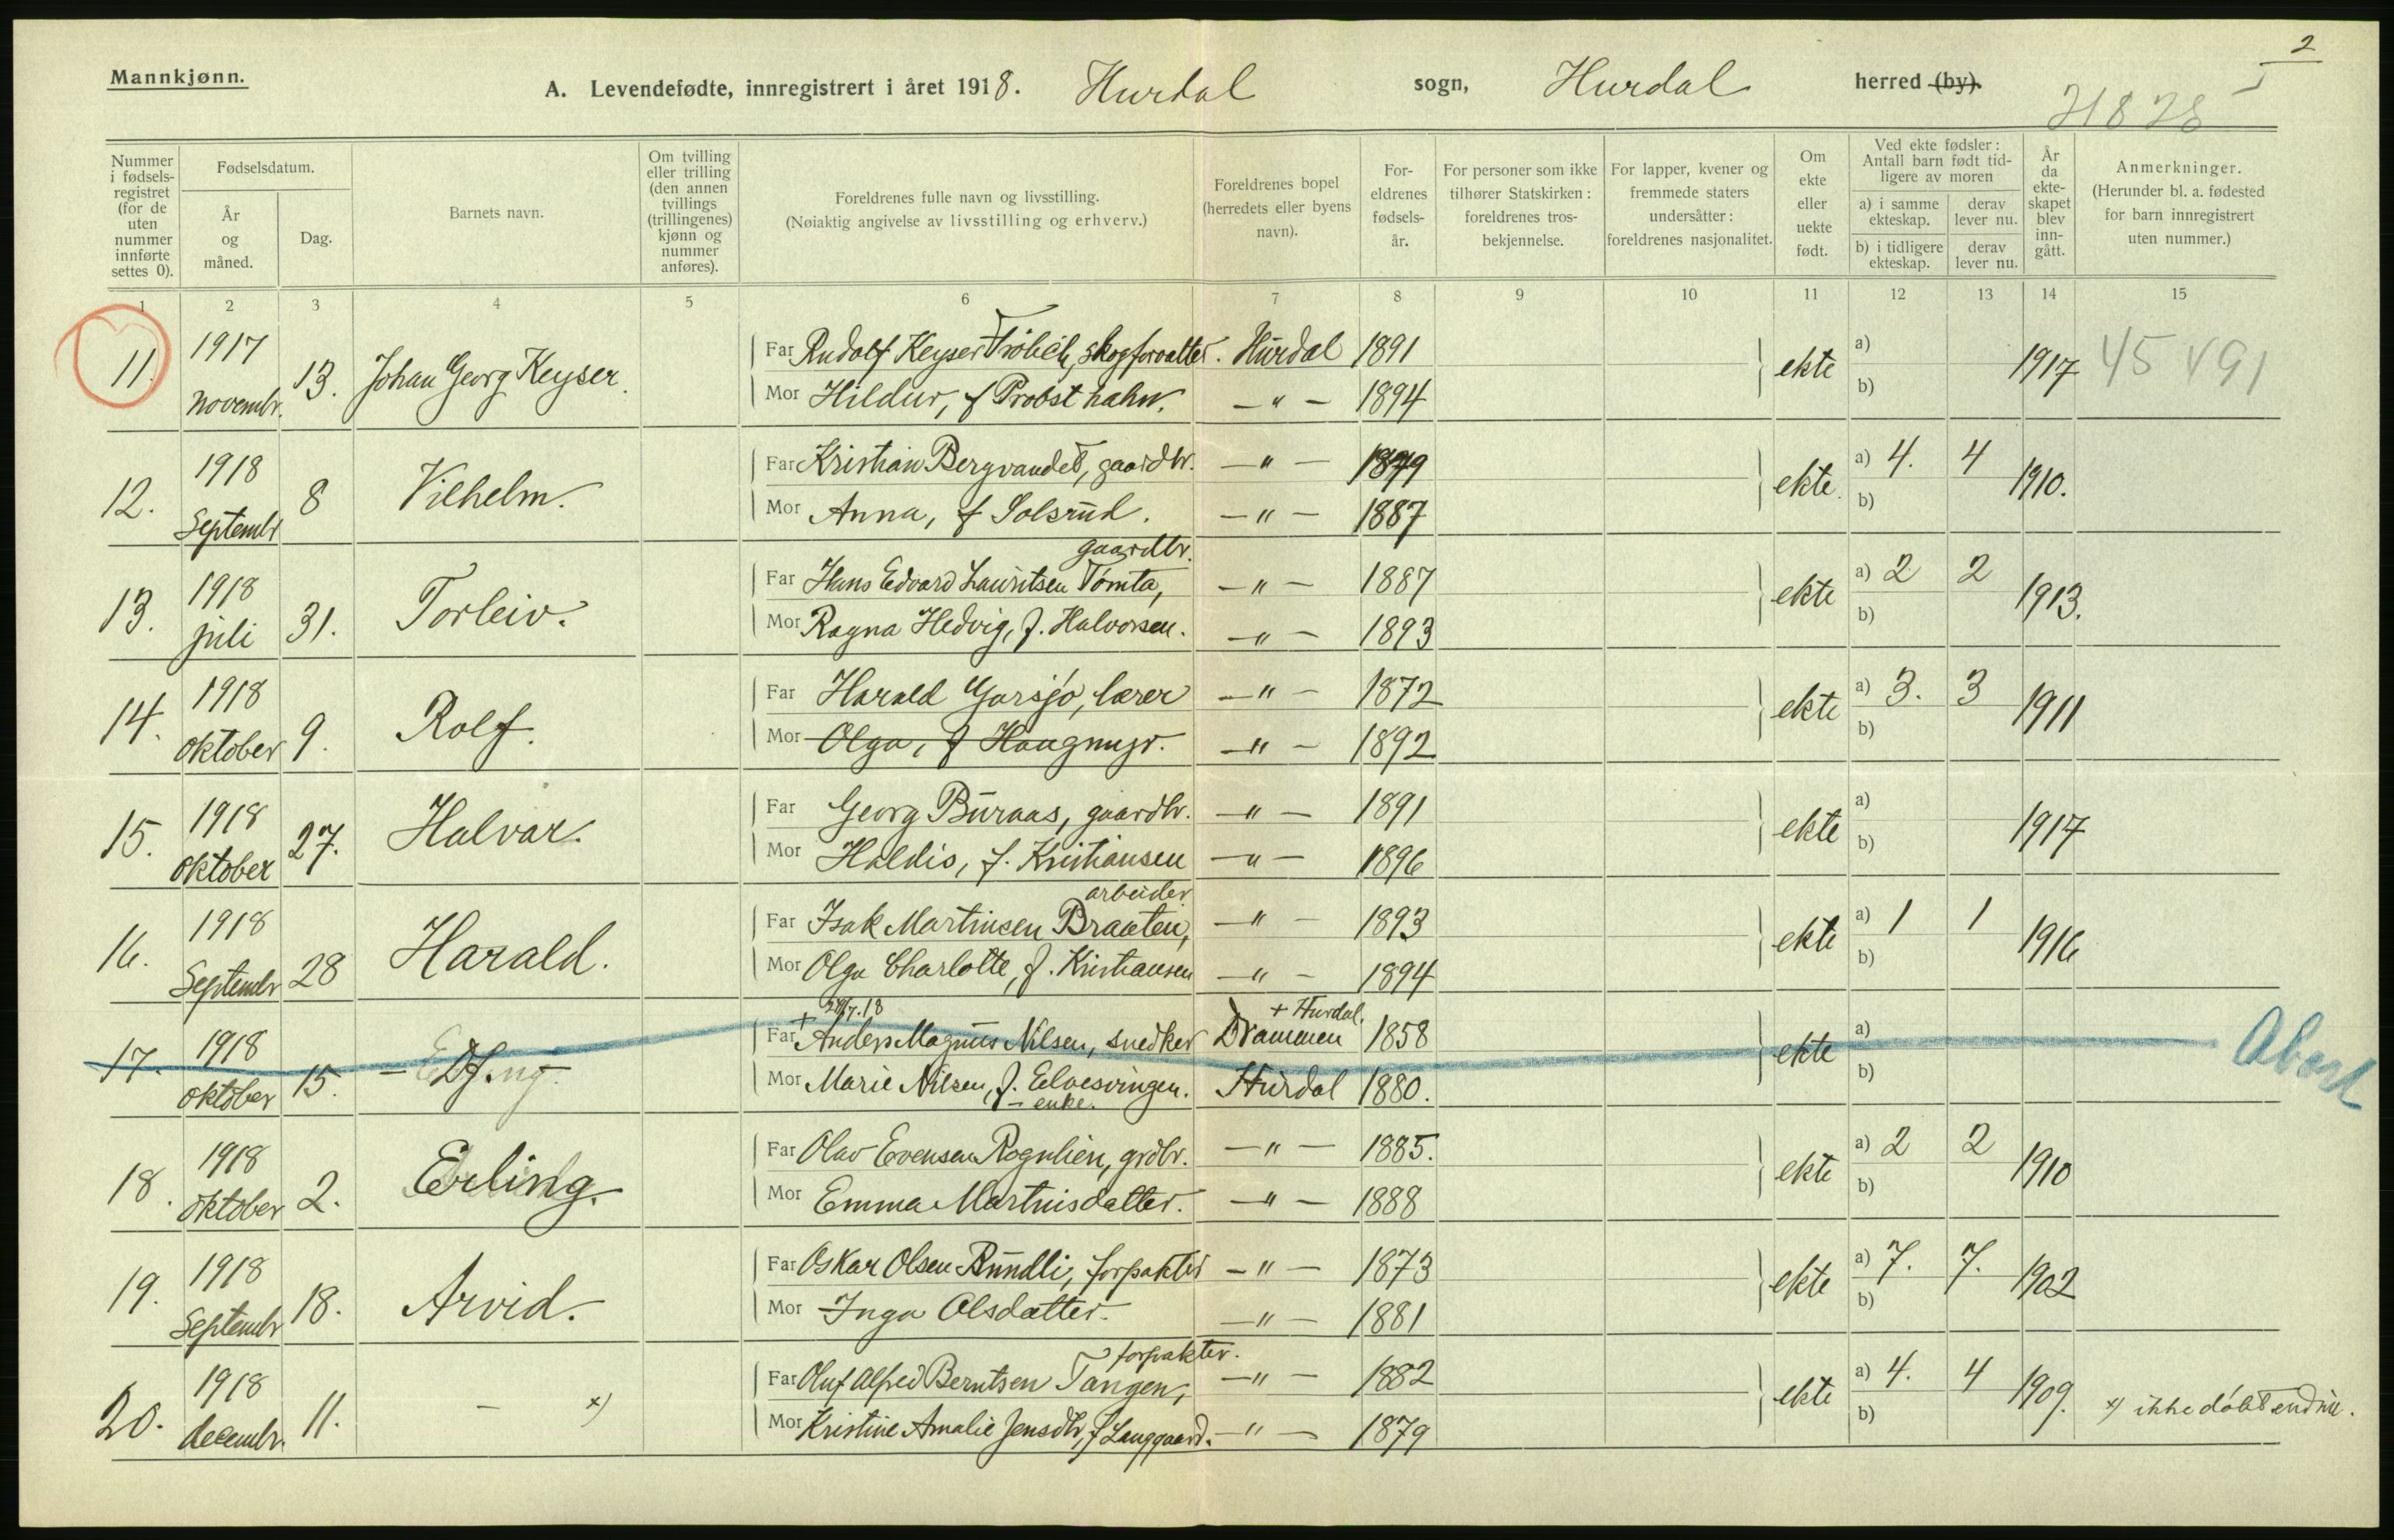 2
Mannkjønn.
A. Levendefødte, innregistrert i året 1918. Hurdal sogn, Hurdal herred (by).
Nummer i fødsels-registret (for de uten nummer innførte settes 0).
Fødselsdatum.
År og måned.
Dag.
Barnets navn.
Om tvilling eller trilling (den annen tvillings (trillingenes) kjønn og nummer anføres).
Foreldrenes fulle navn og livsstilling.
(Nøiaktig angivelse av livsstilling og erhverv.)
Foreldrenes bopel (herredets eller byens navn).
For-eldrenes fødsels-år.
For personer som ikke tilhører Statskirken: foreldrenes tros-bekjennelse.
For lapper, kvener og fremmede staters undersåtter: foreldrenes nasjonalitet.
Om ekte eller uekte født.
Ved ekte fødsler: Antall barn født tid-ligere av moren
a) i samme ekteskap.
derav lever nu.
b) i tidligere ekteskap.
derav lever nu.
År da ekte-skapet blev inn-gått.
Anmerkninger.
(Herunder bl. a. fødested for barn innregistrert uten nummer.)
1 2 3 4 5 6 7 8 9 10 11 12 13 14 15
11. 1917 novembr. 13. Johan Georg Keyser.
Far Rudolf Keyser Frölich, skogforvalter. Hurdal 1891
Mor Hildur, f Probst hahn. —"— 1894
ekte a) b) 1917 45 491
12. 1918 Septembr 8 Vilhelm.
Far Kristian Bergvandet, gaardbr. —"— 1879
Mor Anna, f Solsrud. —"— 1887
ekte. a) 4. 4 b) 1910.
13. 1918 juli 31. Torleiv.
gaardbr.
Far Hans Edvard Lauritsen Tømta, —"— 1887
Mor Ragna Hedvig, f. Halvorsen. —"— 1893
ekte a) 2 2 b) 1913.
14. 1918 oktober 9. Rolf.
Far Harald Garsjø, lærer —"— 1872
Mor Olga, f Haugmyr. —"— 1892
ekte a) 3. 3 b) 1911
15. 1918 oktober 27. Halvar.
Far Georg Buraas, gaardbr. —"— 1891
Mor Haldis, f. Kristiansen —"— 1896
ekte a) b) 1917
16. 1918 Septembr 28 Harald.
arbeider
Far Isak Martinsen Braaten, —"— 1893
Mor Olga Charlotte, f. Kristiansen —"— 1894
ekte a) 1 1 b) 1916
17. 1918 oktober 15. — Df.
+ Hurdal.
Far + Anders Magnus Nilsen, snedker Drammen 1858
Mor Marie Nilsen, f. Eelvesvingen. Hurdal 1880.
– enke.
ekte a) b)
Abort
18. 1918 oktober 2. Erling.
Far Olav Evensen Rognlien, grdbr. —"— 1885.
Mor Emma Martinisdatter. —"— 1888
ekte a) 2 2 b) 1910
19. 1918 Septembr 18. Arvid.
Far Oskar Olsen Rundli, forpakter —"— 1873
Mor Inga Olsdatter. —"— 1881
ekte a) 7. 7. b) 1902
20. 1918 decembr. 11. — x)
forpakter.
Far Oluf Alfred Berntsen Tangen, —"— 1882
Mor Kristine Amalie Jensdtr, f Langgaard. —"— 1879
ekte a) 4. 4 b) 1909. x) ikke døbt endnu.